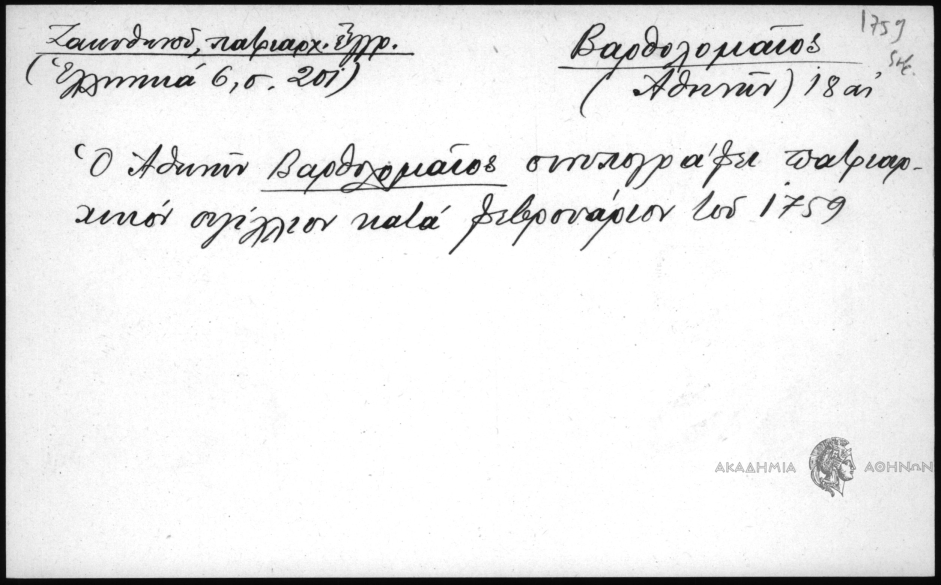 1759
Ζακυθηνοῦ, πατριαρχ. ἔγγρ.
Βαρθολομαῖος
(Ἑλληνικά 6, σ. 201)
(Ἀθηνῶν) 18 αἰ
Ὁ Ἀθηνῶν Βαρθολομαῖος συνυπογράφει πατριαρ-
χικόν σιγίλλιον κατά φεβρουάριον τοῦ 1759
ΑΚΑΔΗΜΙΑ ΑΘΗΝΩΝ